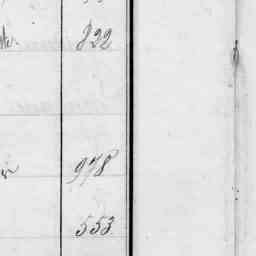 822
978
553